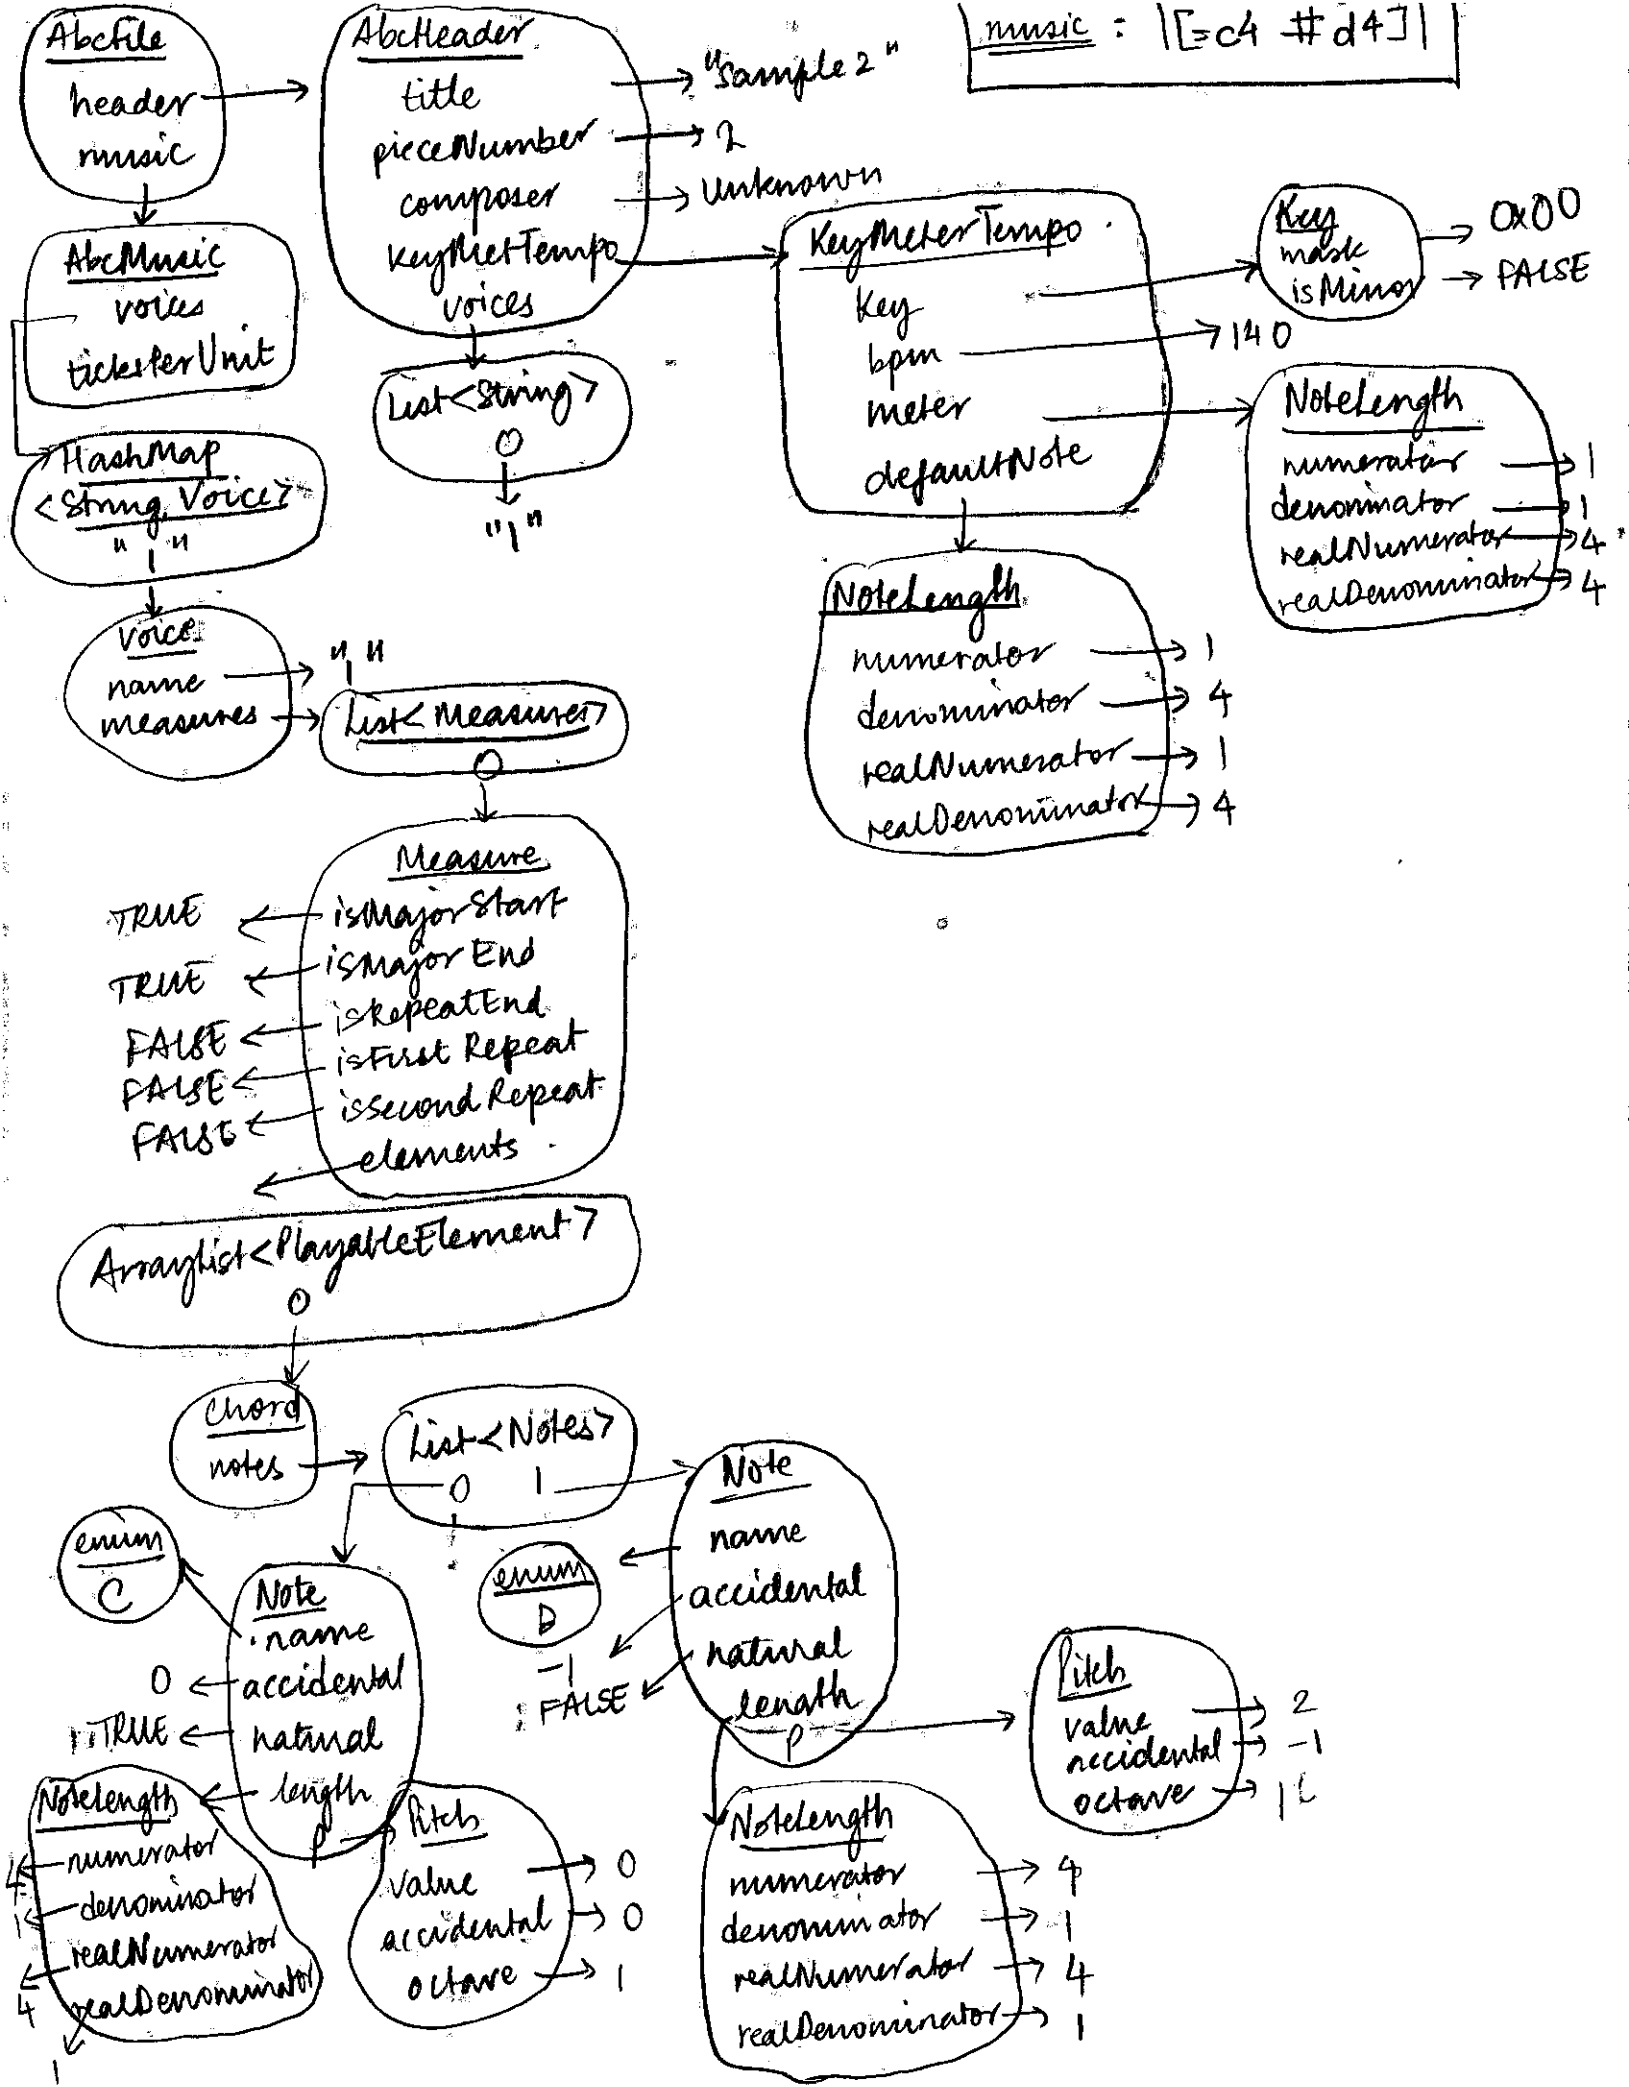 music : |[=c4 #d4]|
AbcFile
header
music
AbcHeader
title
pieceNumber
composer
KeyMetTempo
voices
"Sample 2"
2
Unknown
AbcMusic
voices
ticksPerUnit
List<String>
0
"1"
KeyMeterTempo
Key
bpm
meter
defaultNote
Key
mask
isMinor
0x00
FALSE
140
NoteLength
numerator
denominator
realNumerator
realDenominator
1
1
4
4
HashMap
<String, Voice>
"1"
Voice
name
measures
"1"
List<Measures>
0
NoteLength
numerator
denominator
realNumerator
realDenominator
1
4
1
4
Measure
isMajorStart
isMajorEnd
isRepeatEnd
isFirst Repeat
isSecond Repeat
elements
TRUE
TRUE
FALSE
FALSE
FALSE
ArrayList<PlayableElement>
0
Chord
notes
List<Notes>
0 1
enum
C
Note
name
accidental
natural
length
P
0
TRUE
enum
D
Note
name
accidental
natural
length
P
-1
FALSE
Pitch
value
accidental
octave
2
-1
1
NoteLength
numerator
denominator
realNumerator
realDenominator
4
1
4
1
Pitch
value
accidental
octave
0
0
1
NoteLength
numerator
denominator
realNumerator
realDenominator
4
1
4
1